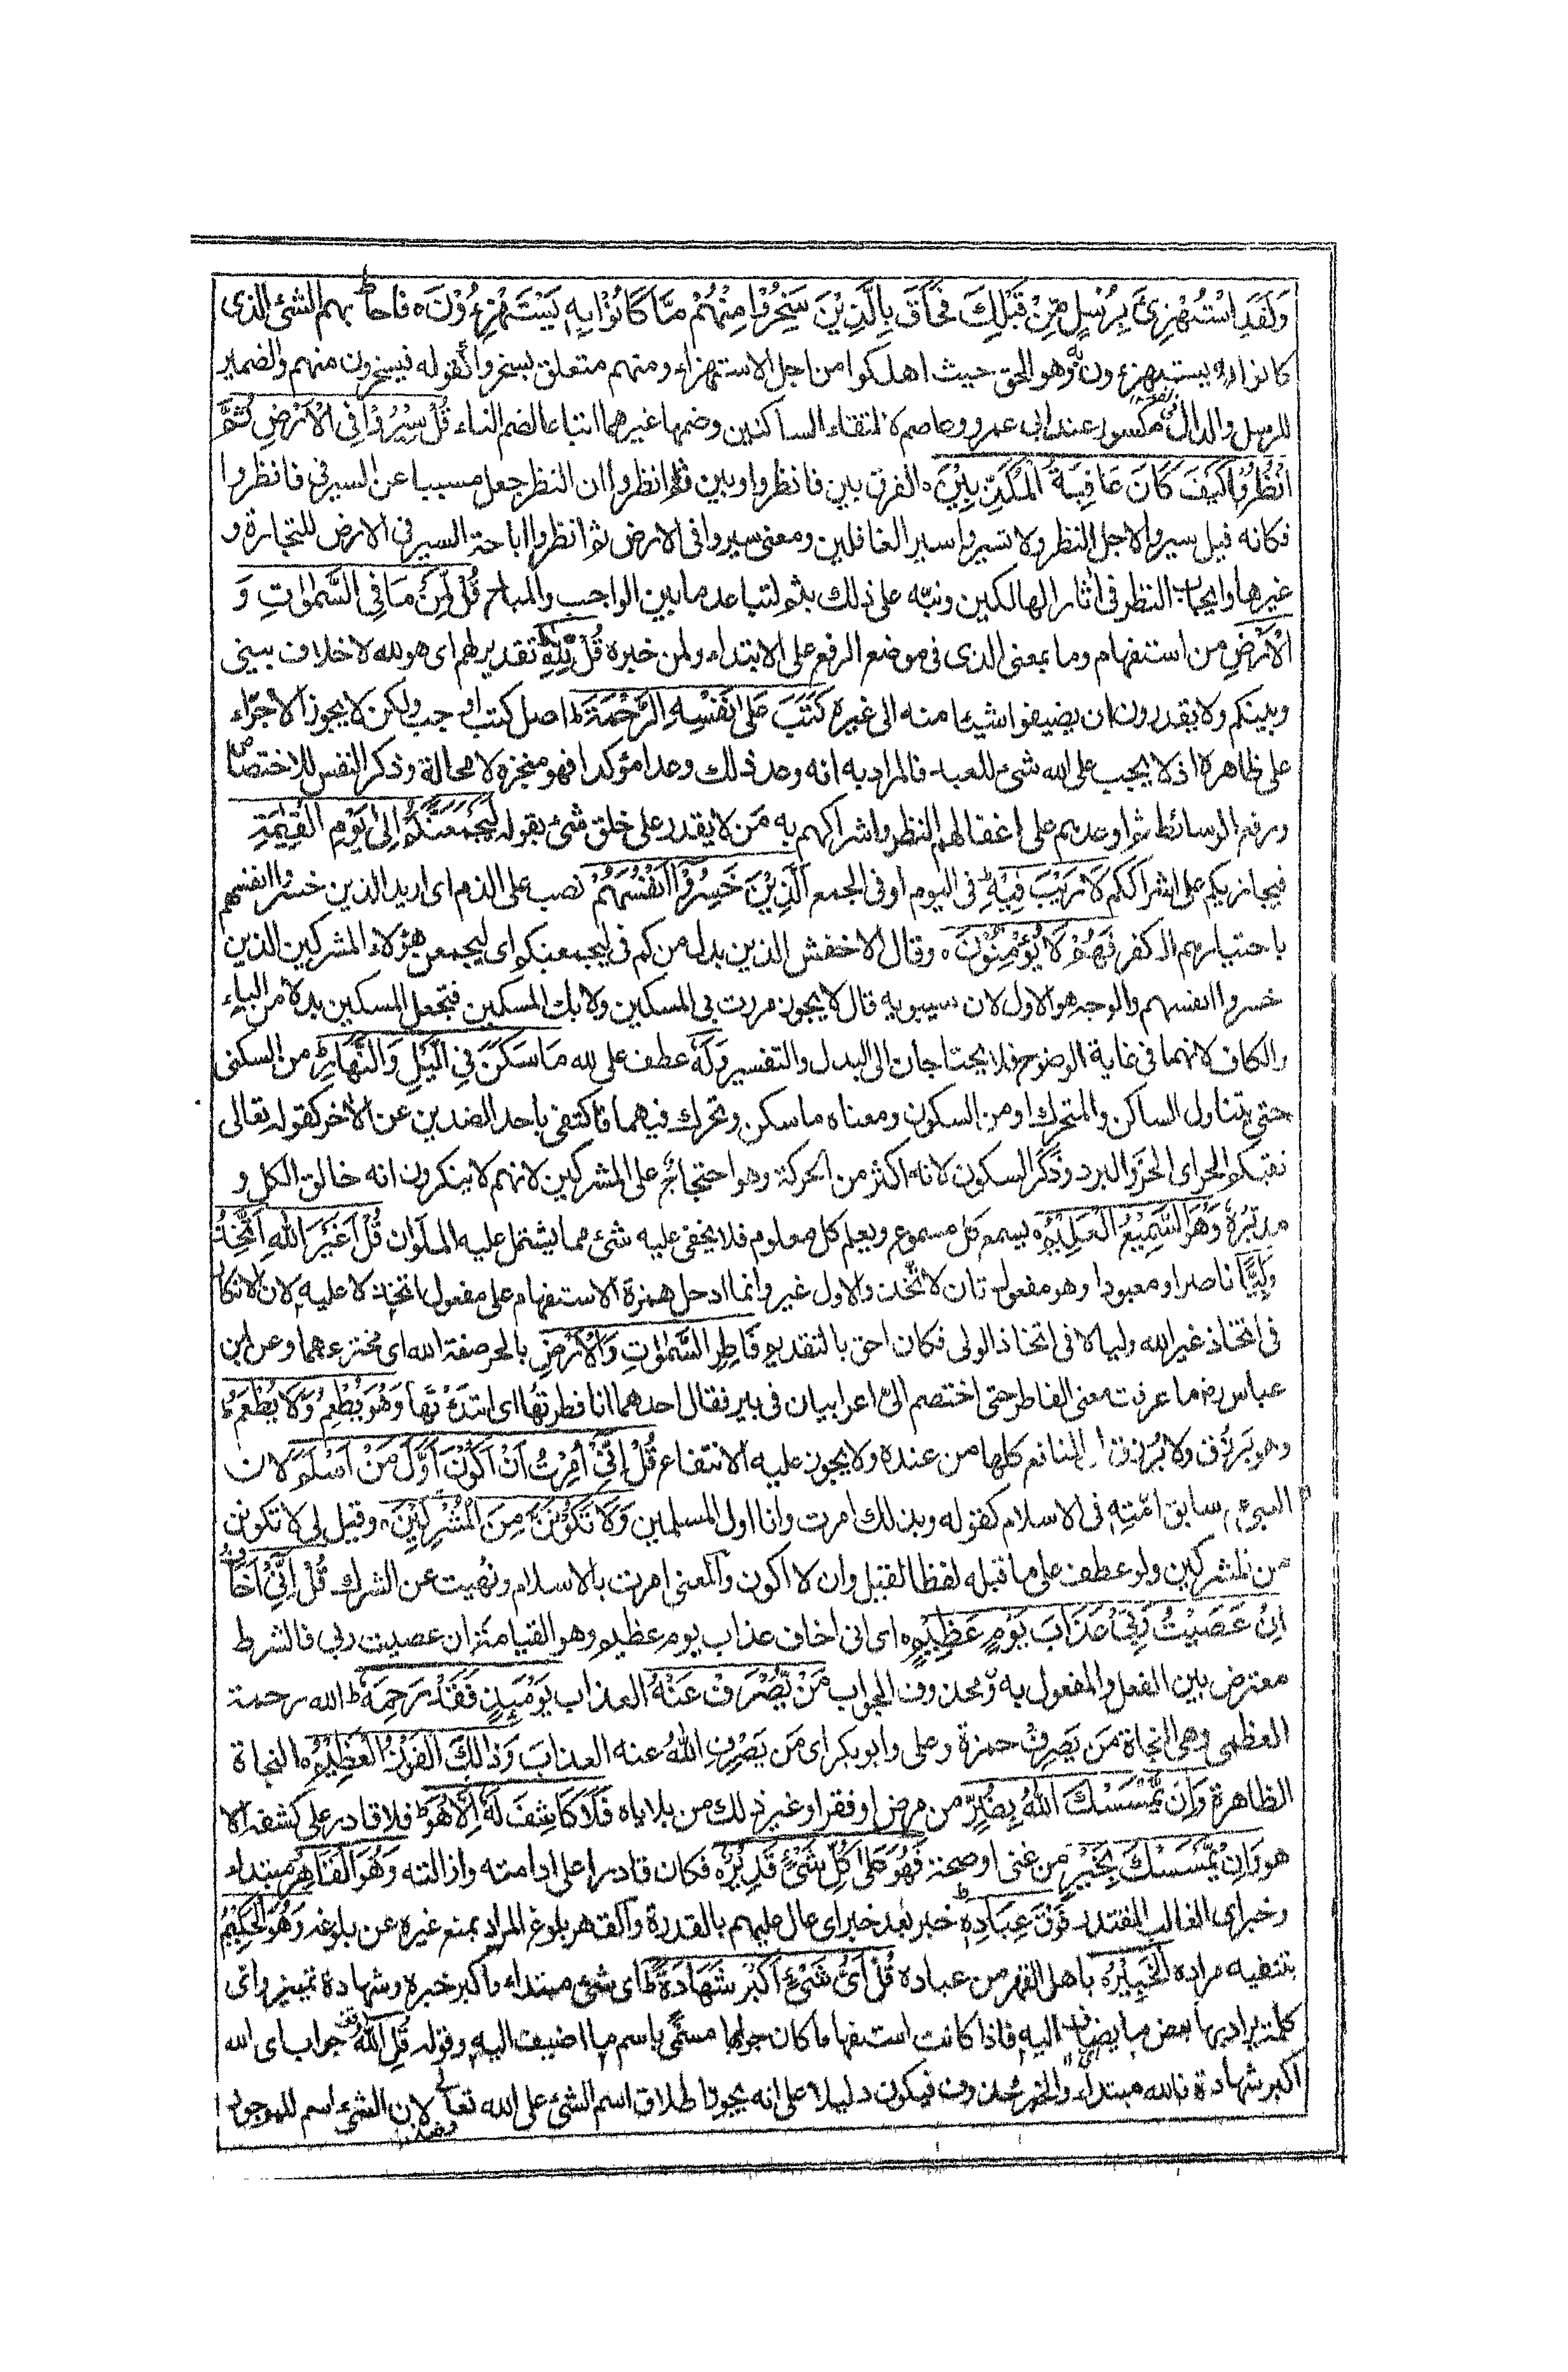 وَلَقَدِ اسْتُهْزِئَ بِرُسُلٍ مِّنْ قَبْلِكَ فَحَاقَ بِالَّذِيْنَ سَخِرُوْا مِنْهُمْ مَّا كَانُوْا بِهٖ يَسْتَهْزِءُوْنَ ہ فاحاط بهم الشئ الذی
كانوا به يستهزءون وهو الحق حيث اهلكوا من اجل الاستهزاء ومنهم متعلق بسخروا كقوله فيسخرون منهم والضمير
للرسل والدال مكسور عند ابی عمرو وعاصم لالتقاء الساكنين وضمها غيرهما اتباعا لضم التاء قُلْ سِيْرُوْا فِی الْاَرْضِ ثُمَّ
انْظُرُوْا كَيْفَ كَانَ عَاقِبَةُ الْمُكَذِّبِيْنَ ہ الفرق بين فانظروا وبين ثم انظروا ان النظر جعل مسببا عن السير فی فانظروا
فكانه قيل سيروا لاجل النظر ولا تسيروا سير الغافلين ومعنى سيروا فی الارض ثم انظروا اباحة السير فی الارض للتجارة و
غيرها وايجاب النظر فی اثار الهالكين ونبه على ذلك بثم لتباعد ما بين الواجب والمباح قُلْ لِّمَنْ مَّا فِی السَّمٰوٰتِ وَ
الْاَرْضِ من استفهام وما بمعنى الذی فی موضع الرفع على الابتداء ولمن خبره قُلْ لِّلّٰهِ تقدير لهم ای هو لله لا خلاف بينی
وبينكم ولا يقدرون ان يضيفوا شيئا منه الى غيره كَتَبَ عَلٰى نَفْسِهِ الرَّحْمَةَ ط اصل كتب اوجب ولكن لا يجوز الاجراء
على ظاهره اذ لا يجب على الله شئ للعبد فالمراد به انه وعد ذلك وعدا مؤكدا فهو منجزه لا محالة وذكر النفس للاختصاص
ورفع الوسائط ثم اوعدهم على اغفالهم النظر واشراكهم به مَن لا يقدر على خلق شئ بقوله لَيَجْمَعَنَّكُمْ اِلٰى يَوْمِ الْقِيٰمَةِ
فيجازيكم على اشراككم لَا رَيْبَ فِيْهِ ط فی اليوم او فی الجمع اَلَّذِيْنَ خَسِرُوْۤا اَنْفُسَهُمْ نصب على الذم ای اريد الذين خسروا انفسهم
باختيارهم الكفر فَهُمْ لَا يُؤْمِنُوْنَ ہ وقال الاخفش الذين بدل من كم فی ليجمعنكم ای ليجمعن هؤلاء المشركين الذين
خسروا انفسهم والوجه هو الاول لان سيبويه قال لا يجوز مررت بی المسكين ولا بك المسكين فتجعل المسكين بدلا من الياء
والكاف لانهما فی غاية الوضوح فلا يحتاجان الى البدل والتفسير وَلَهٗ عطف على لله مَا سَكَنَ فِی الَّيْلِ وَالنَّهَارِ ط من السكنى
حتى يتناول الساكن والمتحرك او من السكون ومعناه ما سكن وتحرك فيهما فاكتفى باحد الضدين عن الاخر كقوله تعالى
تقيكم الحر ای الحر والبرد وذكر السكون لانه اكثر من الحركة وهو احتجاج على المشركين لانهم لا ينكرون انه خالق الكل و
مدبره وَهُوَ السَّمِيْعُ الْعَلِيْمُ ہ يسمع كل مسموع ويعلم كل معلوم فلا يخفى عليه شئ مما يشتمل عليه الملوان قُلْ اَغَيْرَ اللّٰهِ اَتَّخِذُ
وَلِيًّا ناصرا ومعبودا وهو مفعول ثان لاتخذ والاول غير وانما ادخل همزة الاستفهام على مفعول اتخذ لا عليه لان الانكار
فی اتخاذ غير الله وليا لا فی اتخاذ الولی فكان احق بالتقديم فَاطِرِ السَّمٰوٰتِ وَالْاَرْضِ بالجر صفة الله ای مخترعهما وعن ابن
عباس رض ما عرفت معنى الفاطر حتى اختصم الیّ اعرابيان فی بير فقال احدهما انا فطرتها ای ابتدأتها وَهُوَ يُطْعِمُ وَلَا يُطْعَمُ
وهو يَرزُق ولا يُرزَق ای المنافع كلها من عنده ولا يجوز عليه الانتفاع قُلْ اِنِّیْ اُمِرْتُ اَنْ اَكُوْنَ اَوَّلَ مَنْ اَسْلَمَ لان
النبی سابق امته فی الاسلام كقوله وبذلك امرت وانا اول المسلمين وَلَا تَكُوْنَنَّ مِنَ الْمُشْرِكِيْنَ وقيل لی لا تكونن
من المشركين ولو عطف على ما قبله لفظا لقيل وان لا اكون والمعنى امرت بالاسلام ونهيت عن الشرك قُلْ اِنِّیْۤ اَخَافُ
اِنْ عَصَيْتُ رَبِّیْ عَذَابَ يَوْمٍ عَظِيْمٍ ہ ای انی اخاف عذاب يوم عظيم وهو القيامة ان عصيت ربی فالشرط
معترض بين الفعل والمفعول به ومحذوف الجواب مَنْ يُّصْرَفْ عَنْهُ العذاب يَوْمَئِذٍ فَقَدْ رَحِمَهٗ ط الله رحمة
العظمى وهی النجاة مَن يَصرِف حمزة وعلی وابو بكر ای مَن يَصرِف اللهُ عنه العذابَ وَذٰلِكَ الْفَوْزُ الْعَظِيْمُ ہ النجاة
الظاهرة وَاِنْ يَّمْسَسْكَ اللّٰهُ بِضُرٍّ من مرض او فقر او غير ذلك من بلاياه فَلَا كَاشِفَ لَهٗۤ اِلَّا هُوَ ط فلا قادر على كشفه الا
هو وَاِنْ يَّمْسَسْكَ بِخَيْرٍ من غنى او صحة فَهُوَ عَلٰى كُلِّ شَیْءٍ قَدِيْرٌ ہ فكان قادرا على ادامته وازالته وَهُوَ الْقَاهِرُ مبتداء
وخبر ای الغالب المقتدر فَوْقَ عِبَادِهٖ ط خبر بعد خبر ای عال عليهم بالقدرة والقهر بلوغ المراد بمنع غيره عن بلوغه وَهُوَ الْحَكِيْمُ
بتنفيذ مراده الْخَبِيْرُ ہ باهل القهر من عباده قُلْ اَیُّ شَیْءٍ اَكْبَرُ شَهَادَةً ط ای شئ مبتداء واكبر خبره وشهادة تمييز وای
كلمة يراد بها بعض ما يضاف اليه فاذا كانت استفهاما كان جوابها مسمى باسم ما اضيف اليه وقوله قُلِ اللّٰهُ جواب ای الله
اكبر شهادة فالله مبتداء والخبر محذوف فيكون دليلا على انه يجوز اطلاق اسم الشئ على الله تعالى لان الشئ اسم للموجود